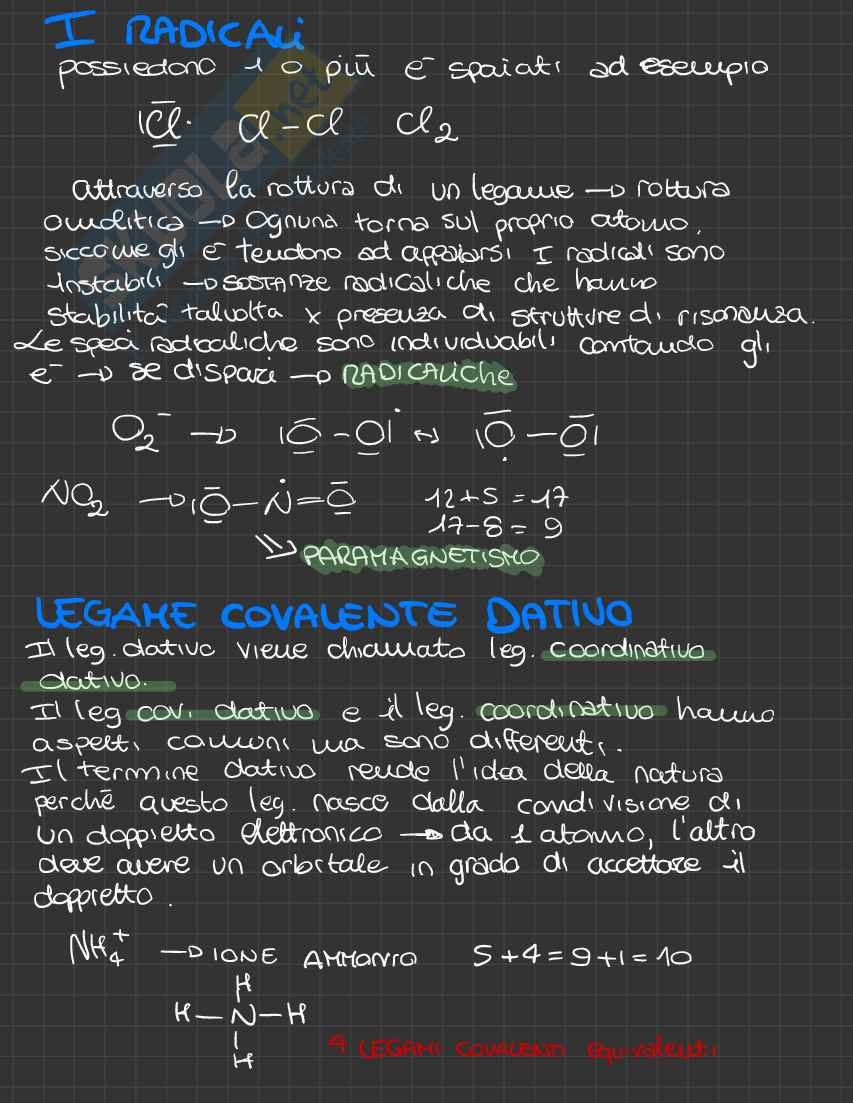 I RADICALI
possiedono 1 o più e⁻ spaiati ad esempio
|C̅l̲· Cl-Cl Cl₂
attraverso la rottura di un legame → rottura
omolitica → Ognuna torna sul proprio atomo,
siccome gli e⁻ tendono ad appaiarsi I radicali sono
instabili → SOSTANZE radicaliche che hanno
stabilità talvolta x presenza di strutture di risonanza.
Le speci radicaliche sono individuabili contando gli
e⁻ → se dispari → RADICALICHE
O₂⁻ → |O̲̅-O̲|˙ ↔ |O̅-O̲̅|
NO₂ → |O̲̅-Ṅ=O̲̅ 12+5=17
17-8=9
⇒ PARAMAGNETISMO
LEGAME COVALENTE DATIVO
Il leg. dativo viene chiamato leg. coordinativo
dativo.
Il leg cov. dativo e il leg. coordinativo hanno
aspetti comuni ma sono differenti.
Il termine dativo rende l'idea della natura
perché questo leg. nasce dalla condivisione di
un doppietto elettronico → da 1 atomo, l'altro
deve avere un orbitale in grado di accettare il
doppietto.
NH₄⁺ → IONE AMMONIO 5+4=9+1=10
H
H-N-H
H
4 LEGAMI COVALENTI equivalenti